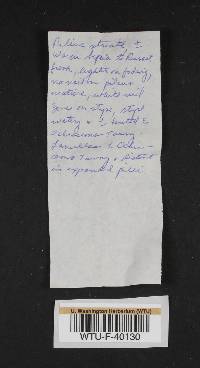 Pileus striate, ±
warm Sepia to Russet
fresh, lighter on fading,
no veil on pileus
mature, white veil
zone on stipe, stipe
watery &
Ochraceous Tawny
Lamellae
Tawny, & distant
in expanded pilei
U. Washington Herbarium (WTU)
WTU-F-40130